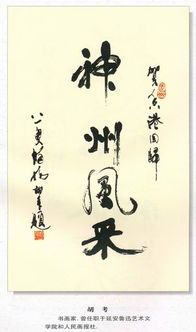 賀香港回歸
神州風采
胡考題
胡 考
书画家，曾任职于延安鲁迅艺术文
学院和人民画报社。